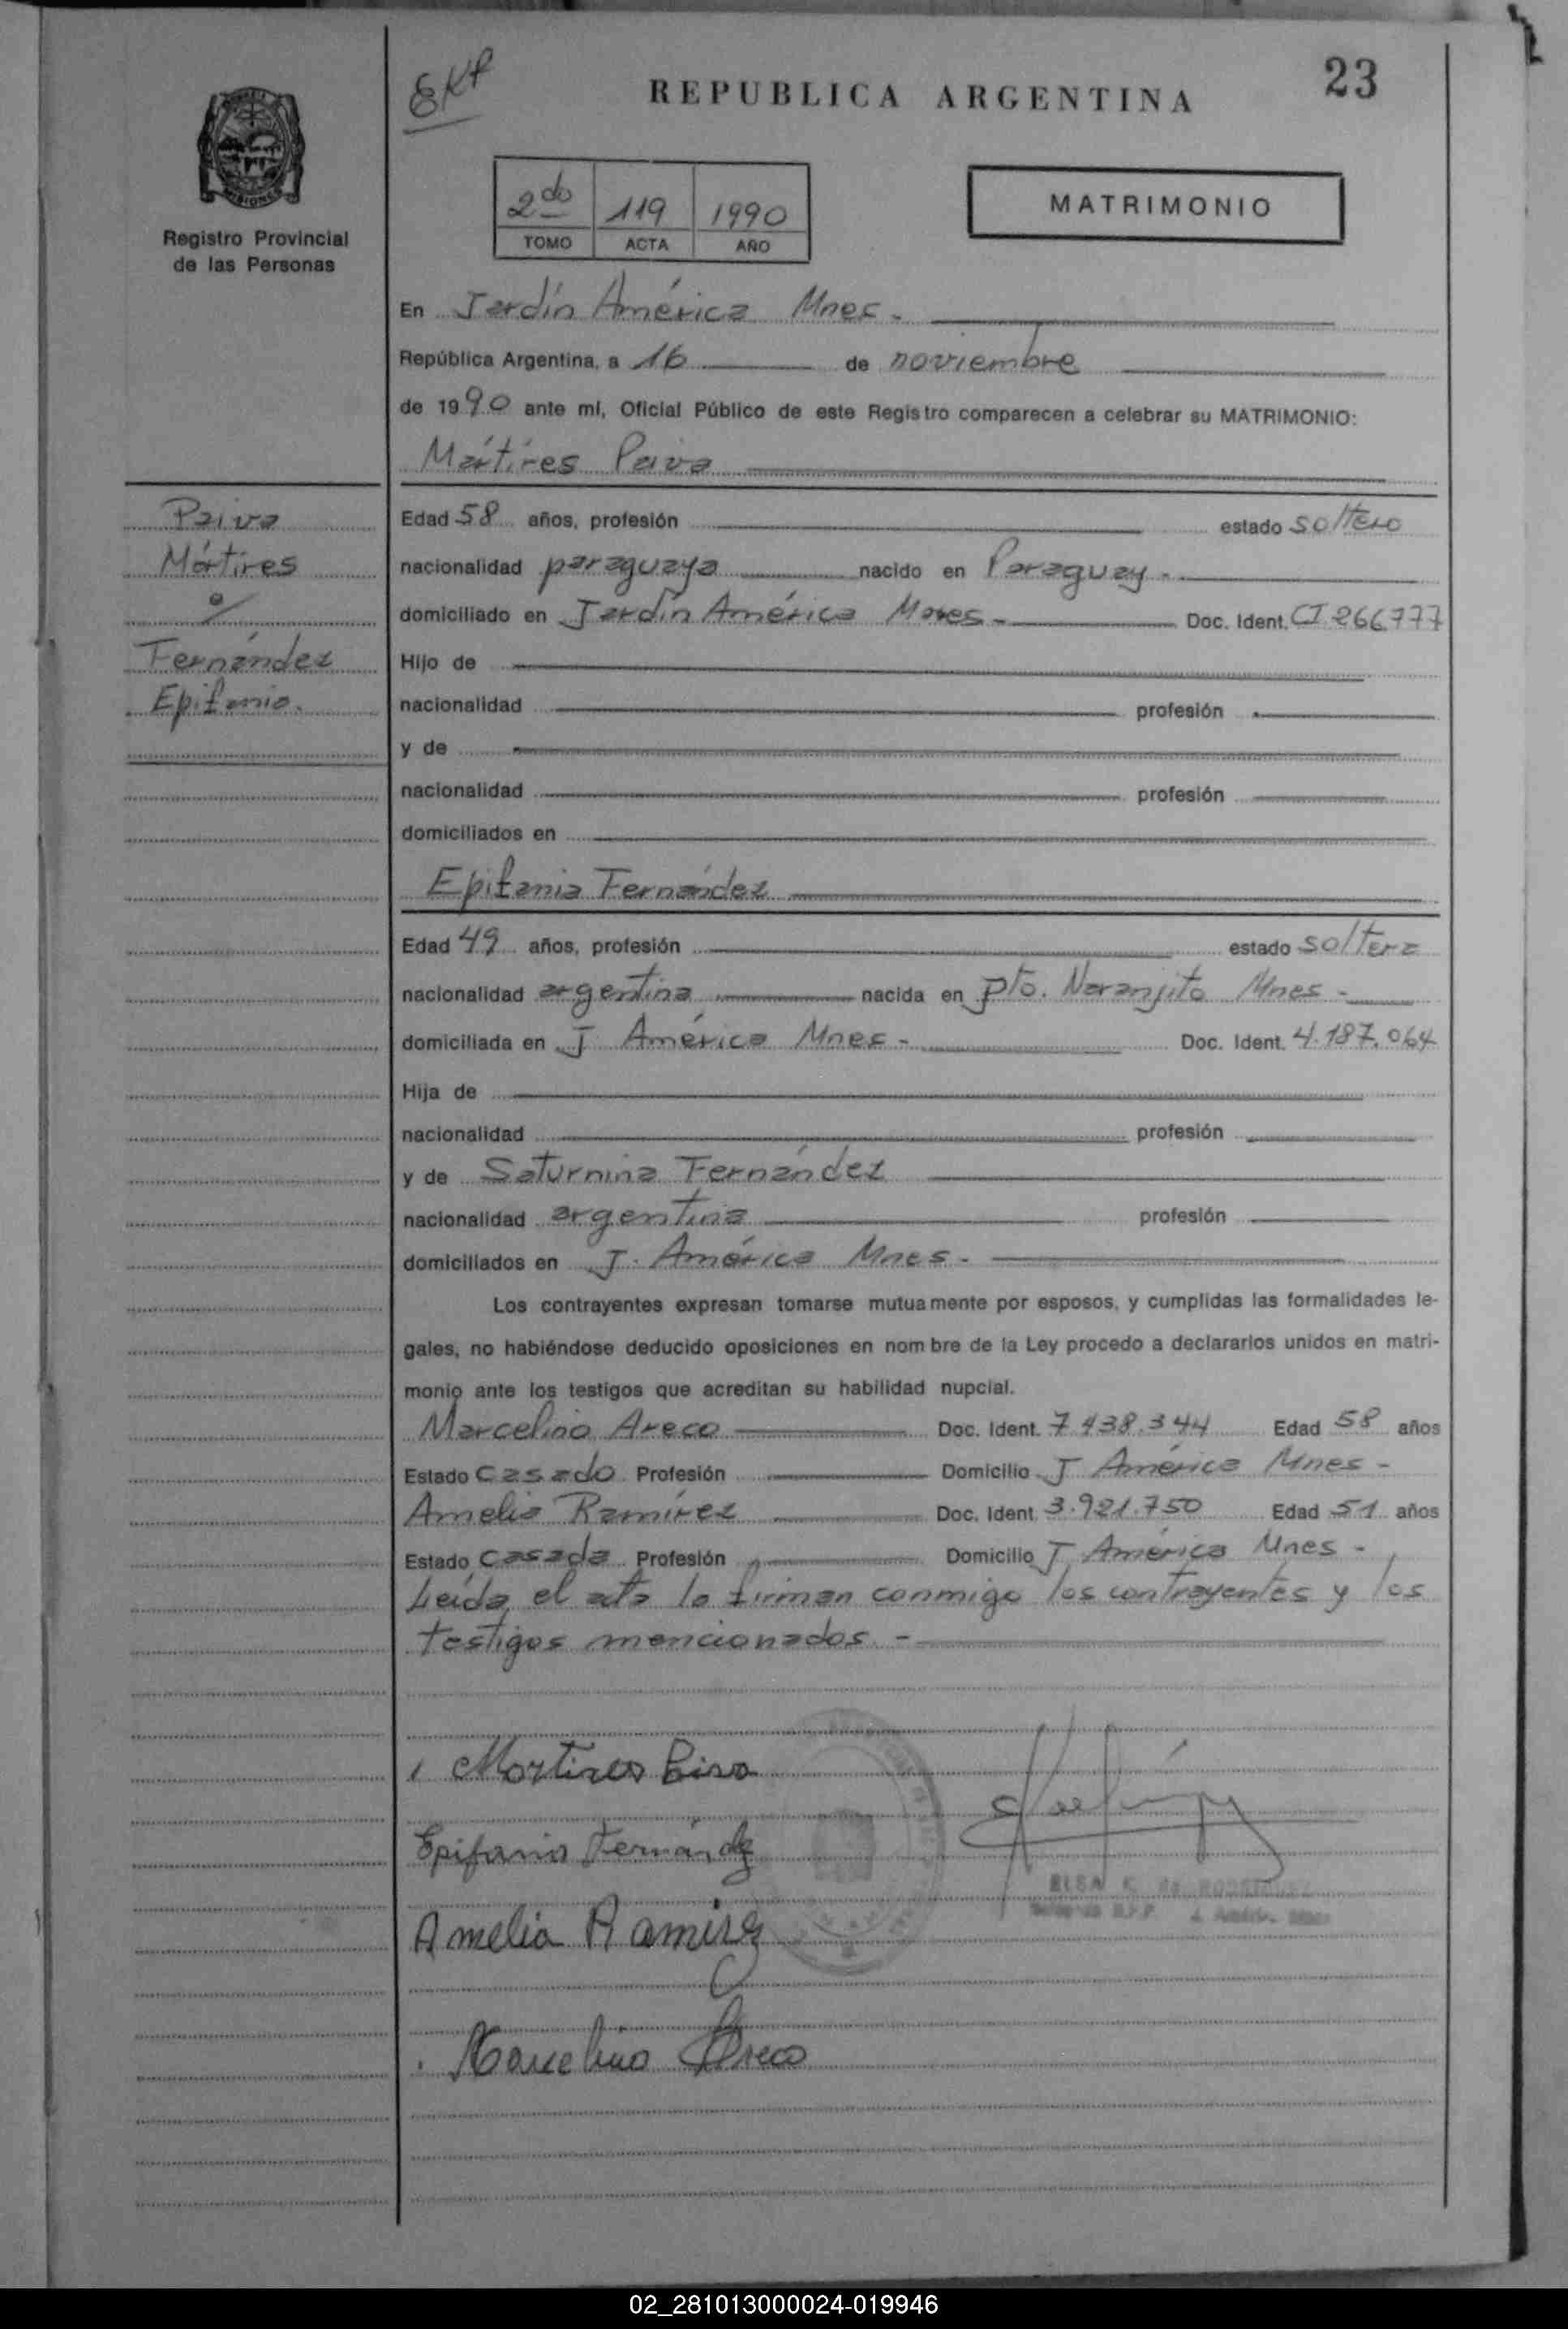 REPUBLICA ARGENTINA
23
2do 119 1990
TOMO ACTA AÑO
MATRIMONIO
MISIONES
Registro Provincial
de las Personas
En Jardín América Mnes.
República Argentina, a 16 de noviembre
de 1990 ante mí, Oficial Público de este Registro comparecen a celebrar su MATRIMONIO:
Mártires Paiva
Paiva
Mártires
Fernández
Epifania.
Edad 58 años, profesión estado soltero
nacionalidad paraguaya nacido en Paraguay.
domiciliado en Jardín América Mnes. Doc. Ident. CI 266777
Hijo de
nacionalidad profesión
y de
nacionalidad profesión
domiciliados en
Epifania Fernández
Edad 49 años, profesión estado soltera
nacionalidad argentina nacida en pto. Naranjito Mnes.
domiciliada en J América Mnes. Doc. Ident. 4.187.064
Hija de
nacionalidad profesión
y de Saturnina Fernández
nacionalidad argentina profesión
domiciliados en J. América Mnes.
Los contrayentes expresan tomarse mutuamente por esposos, y cumplidas las formalidades le-
gales, no habiéndose deducido oposiciones en nombre de la Ley procedo a declararlos unidos en matri-
monio ante los testigos que acreditan su habilidad nupcial.
Marcelino Areco Doc. Ident. 7.438.344 Edad 58 años
Estado Casado Profesión Domicilio J América Mnes.
Amelia Ramírez Doc. Ident. 3.921.750 Edad 51 años
Estado Casada Profesión Domicilio J América Mnes.
Leída el acta la firman conmigo los contrayentes y los
testigos mencionados -
Epifania Fernández
Amelia Ramirez
Marcelino Areco
02_281013000024-019946